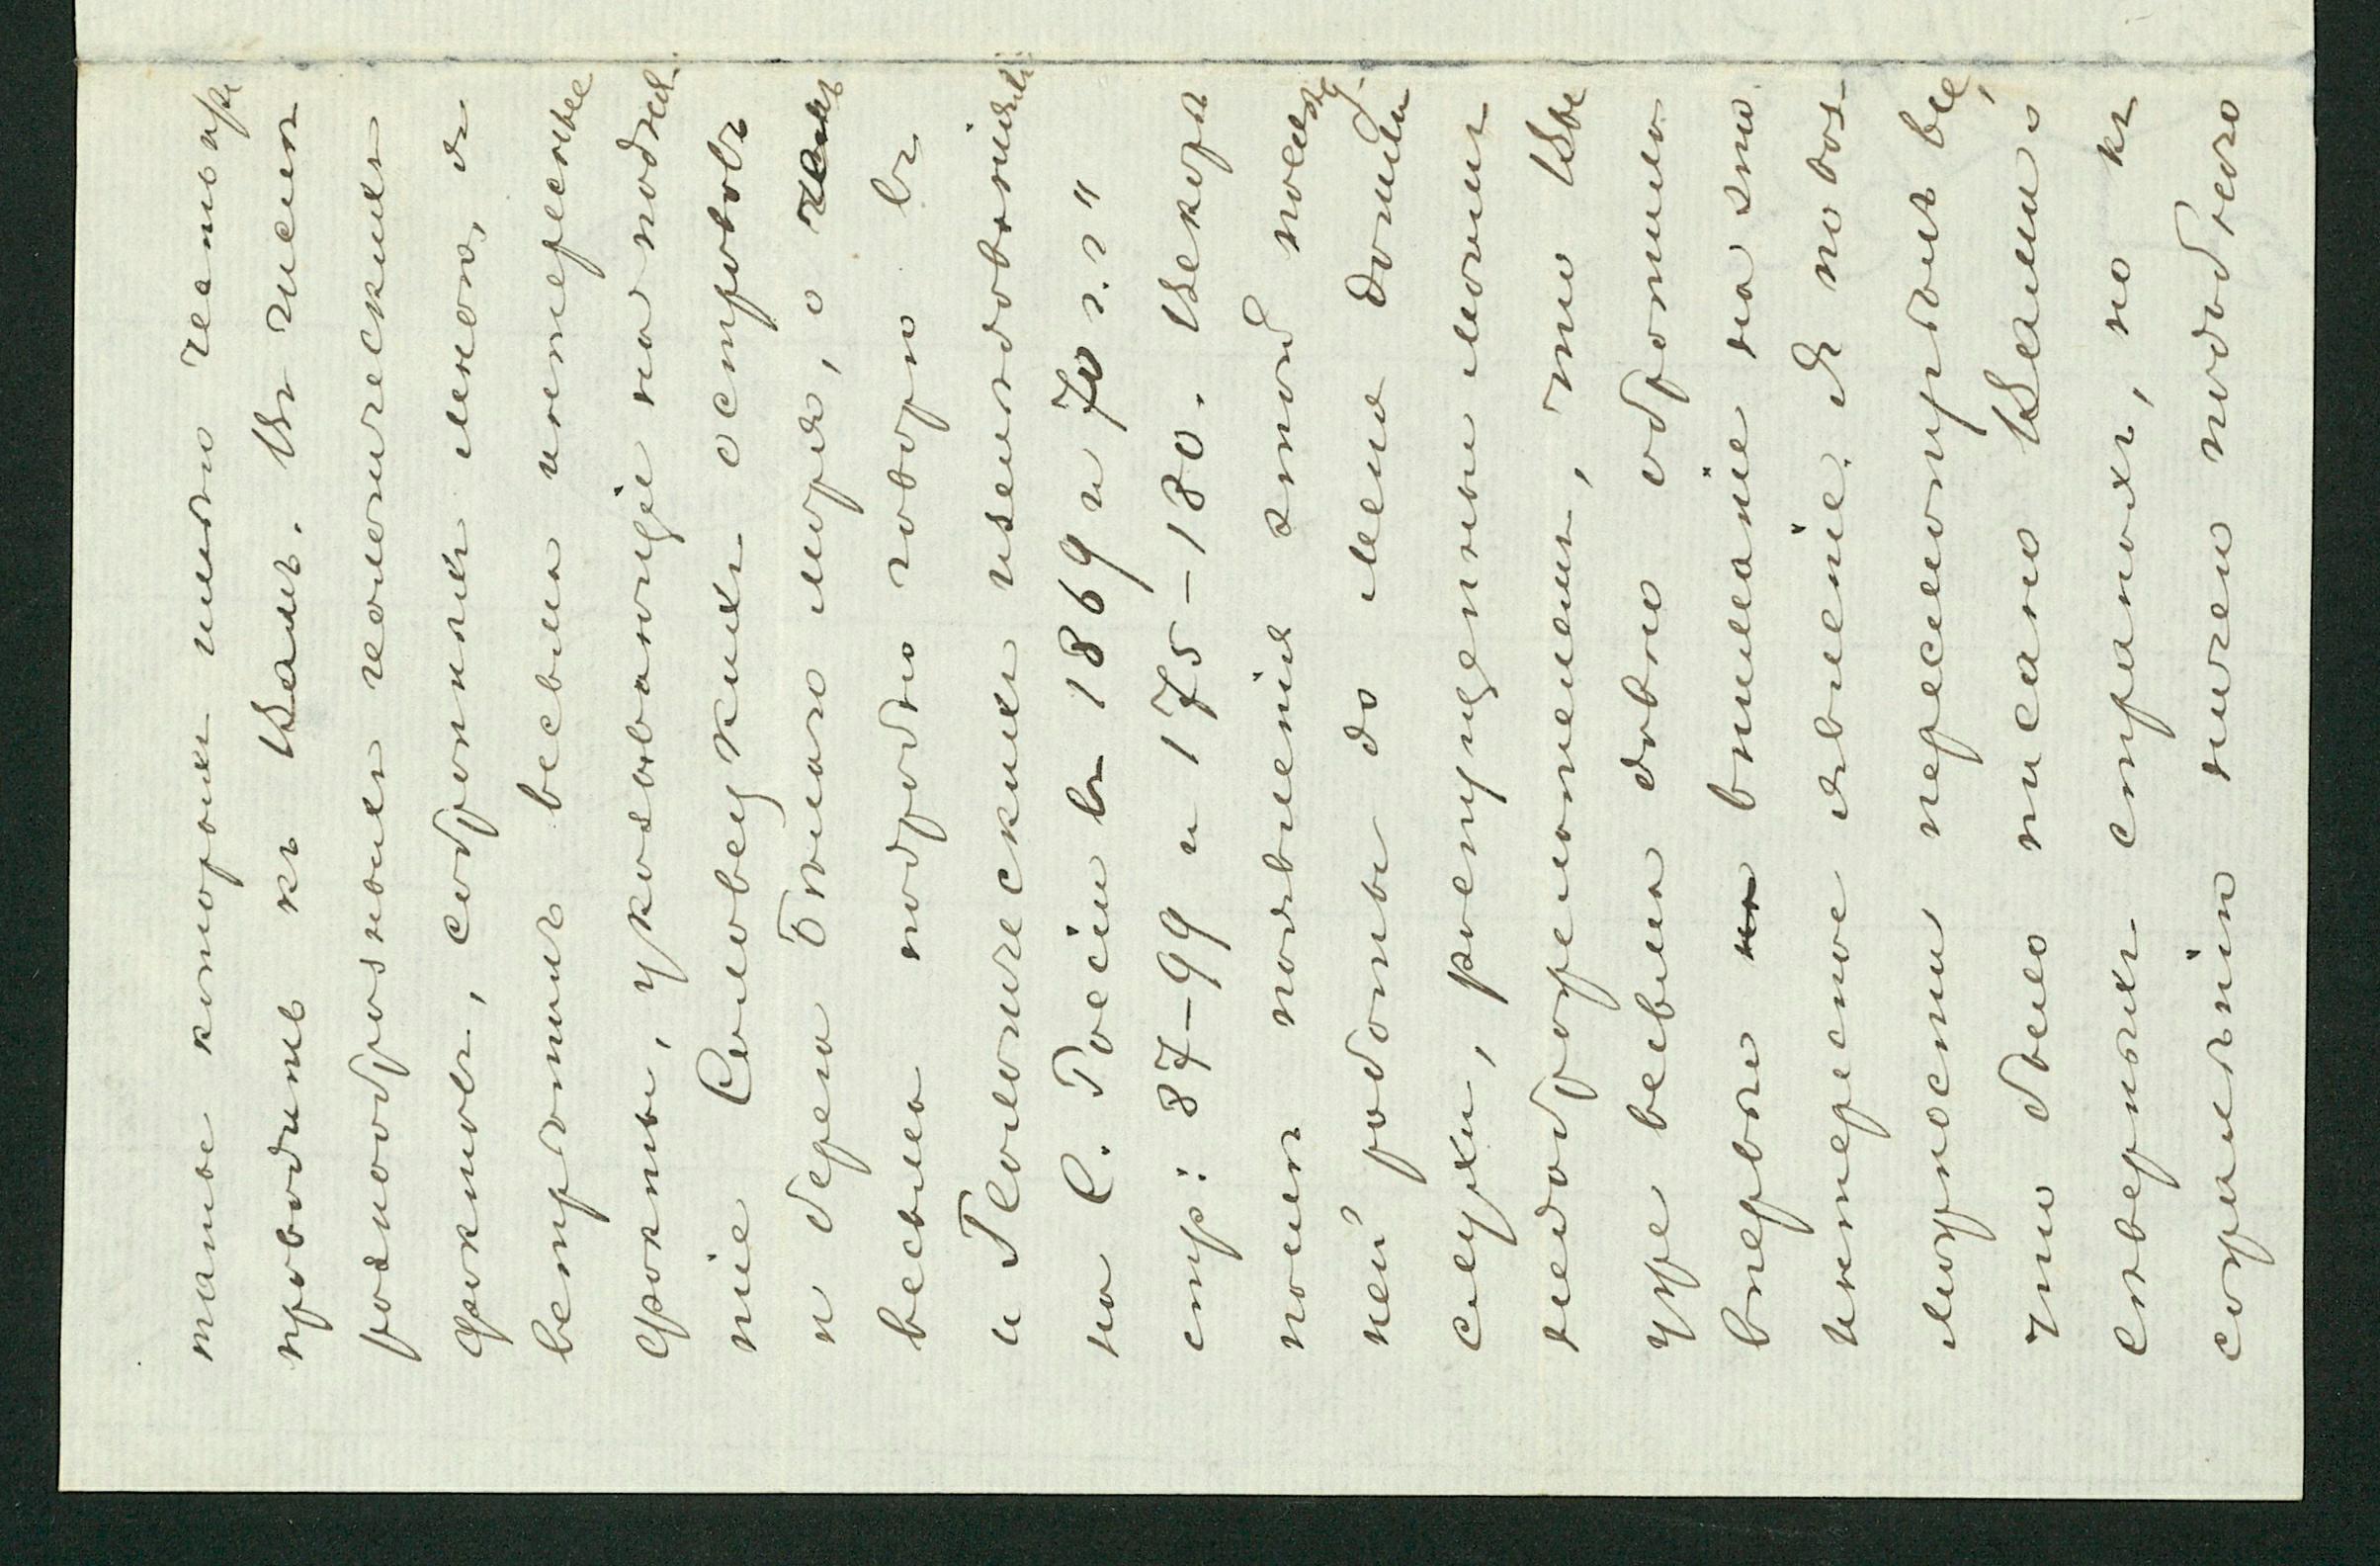 танье которых именно чествую
приводитъ къ Вамъ. Въ числѣ
разнообразныхъ геологическихъ
фактовъ, собранныхъ мною, я
встрѣтилъ весьма интересные
факты, указывающіе на поднят
ніе Соловецкихъ острововъ
и берега Бѣлаго моря, о чемъ
весьма подробно говорю въ
и Геологическихъ изслѣдованіяхъ
на С. Россіи въ 1869 и 70 г.г"
стр: 87-99 и 175-180. Вскорѣ
послѣ появленія этой послѣд
ней работы до меня дошли
слухи, распущенные моими
недоброжелателями, что Вы
уже весьма давно обратили
впервые на вниманіе на это
интересное явленіе. Я по воз-
можности пересмотрѣлъ все,
что было писано Вами о
сѣверныхъ странахъ, но къ
сожалѣнію ничего подобнаго